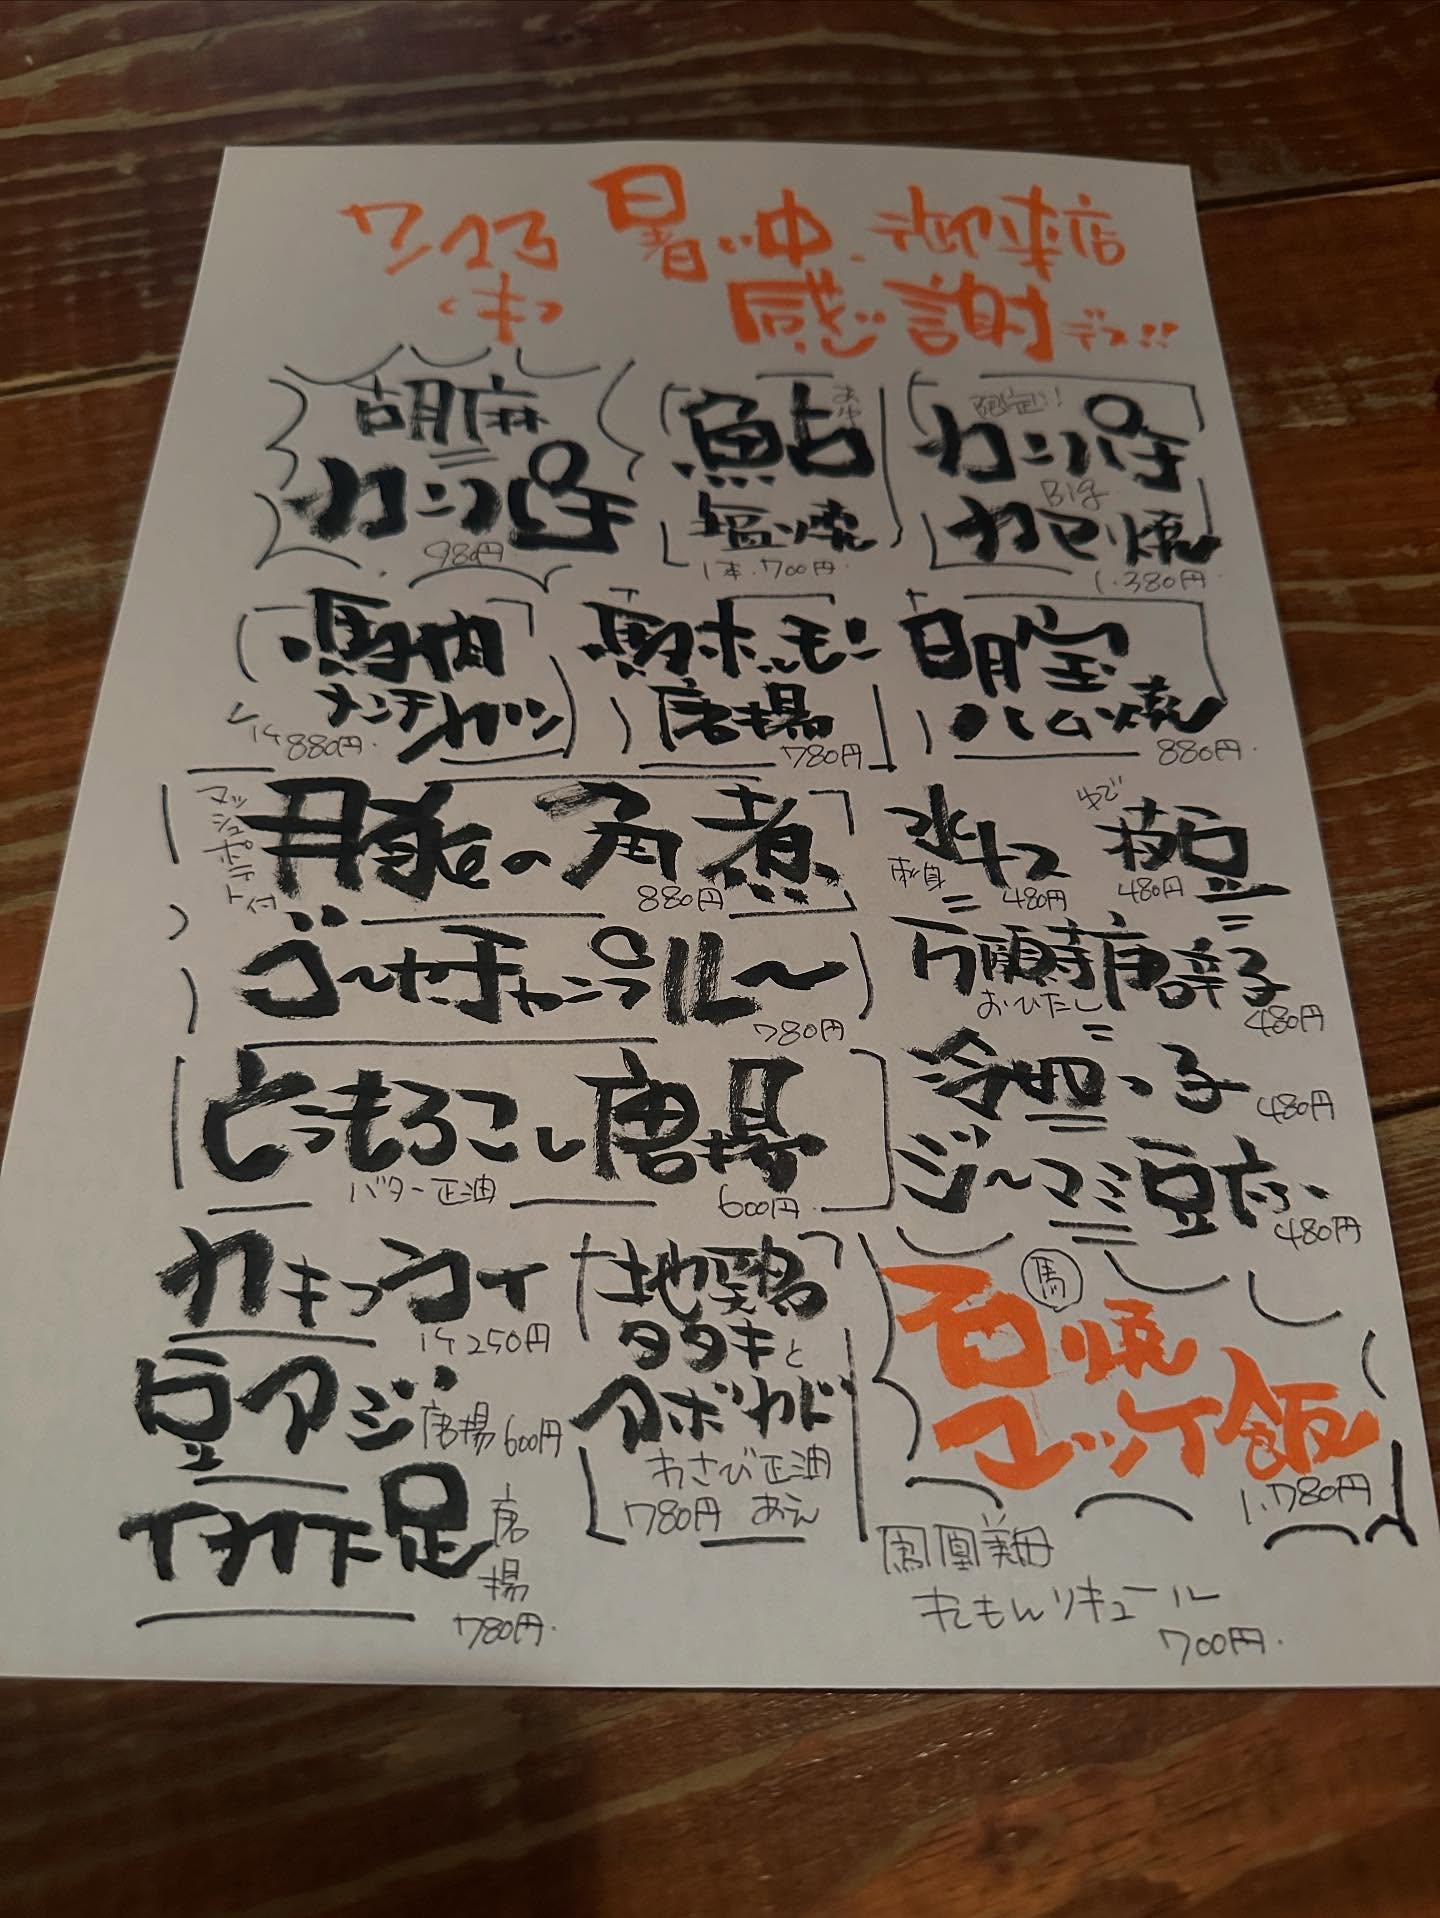 7/23
(木)
暑い中、御来店
感謝デス!!
胡麻
カンパチ
980円
鮎
あゆ
塩焼
1本.700円.
限定!!
カンパチ
Big
カマ焼
1.380円.
馬肉
メンチカツ
1ケ880円.
馬ホルモン
唐揚
780円
明宝
ハム焼
880円.
マッシュポテト付
豚の角煮
880円
水ナス
刺身
480円
ゆで
枝豆
480円
ゴーヤチャンプルー
780円
万願寺唐辛子
おひたし
480円
とうもろこし唐揚
バター正油
600円.
冷やっ子
480円
ジーマミ豆腐
480円
カキフライ
1ケ250円
地鶏
タタキと
アボカド
わさび正油
780円 あえ
豆アジ
唐揚 600円
イカ下足
唐揚
780円.
馬
石焼
ユッケ飯
1.780円
鳳凰美田
れもんリキュール
700円.